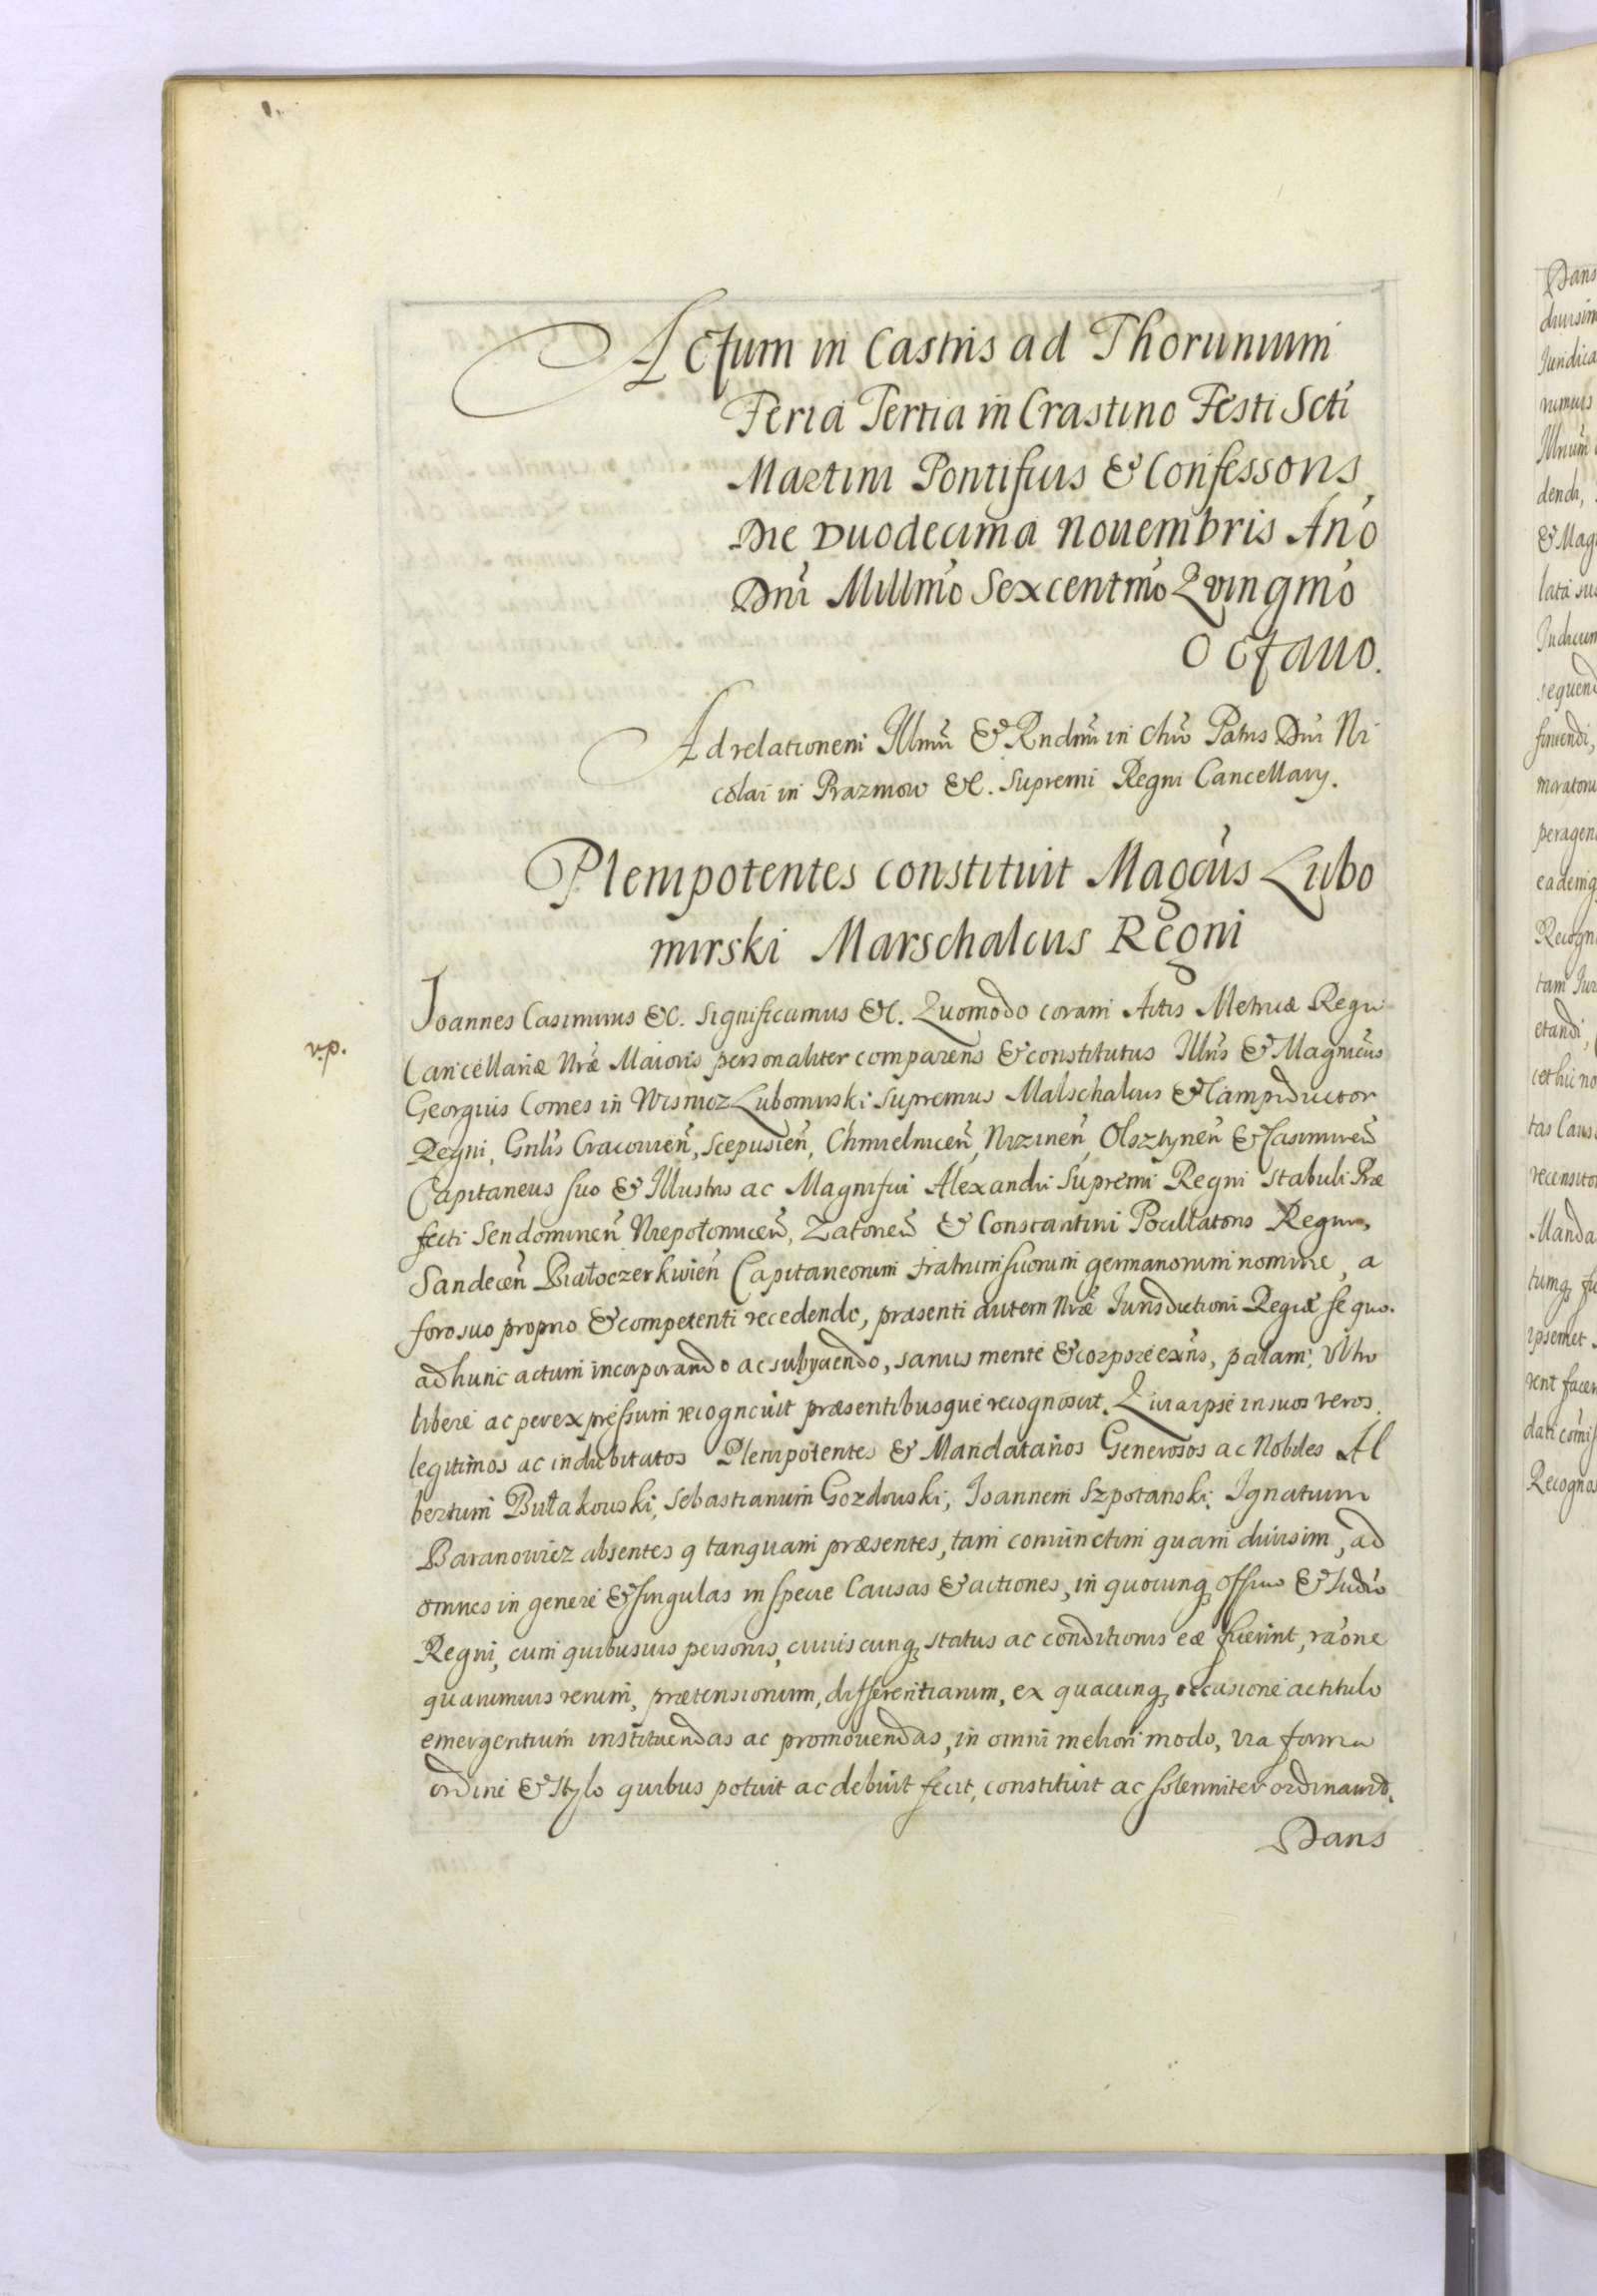 Actum in Castris ad Thorunium
Feria Tertia in Crastino Festi Scti
Martini Pontificis & Confessoris,
Die Duodecima Nouembris Año
Dni Millmo Sexcentmo Qvingmo
Octauo.
Ad relationem Illmi & Rndmi in Chro Patris Dni Ni
colai in Prazmow &c. Supremi Regni Cancellarij.
Plenipotentes constituit Magcus Lubo
mirski Marschalcus Regni
Joannes Casimirus &c. Significamus &c. Quomodo coram Actis Metricæ Regni
v.p.
Cancellariæ Nræ Maioris personaliter comparens & constitutus Illris & Magnicus
Georgius Comes in Wisnicz Lubomirski Supremus Malschalcus & Campiductor
Regni, Gnlis Cracouien, Scepusien, Chmielnicen, Nizinen, Olsztynen & Casimiren
Capitaneus suo & Illustris ac Magnifici Alexandri Supremi Regni Stabuli Præ
fecti Sendomiren Niepołomicen, Zatorien & Constantini Pocillatoris Regni,
Sandecen Białoczerkwien Capitaneorum fratrum suorum germanorum nomine, a
foro suo proprio & competenti recedendo, præsenti autem Nræ Jurisdictioni Regiæ se quo
ad hunc actum incorporando ac subijciendo, sanus mente & corpore exns, palam, vltro
libere ac per expressum recognouit præsentibusque recognoscit. Quia ipse in suos veros
legitimos ac indubitatos Plenipotentes & Mandatarios Generosos ac Nobiles Al
bertum Bułakowski, Sebastianum Gozdowski, Joannem Szpotanski, Ignatium
Baranowicz absentes q tanquam præsentes, tam coniunctim quam diuisim, ad
omnes in genere & singulas in specie Causas & actiones, in quocunq officio & Iudio
Regni, cum quibusuis personis, cuiuscunq status ac conditionis eæ fuerint, raone
quarumuis rerum, prætensionum, differentiarum, ex quacunq occasione ac titulo
emergentium instituendas ac promouendas, in omni meliori modo, via forma
ordine & stylo quibus potuit ac debuit fecit, constituit ac solenniter ordinauit.
Dans